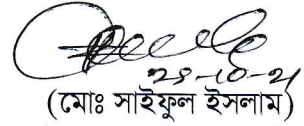 ২৪-১০-২১
(মোঃ সাইফুল ইসলাম)